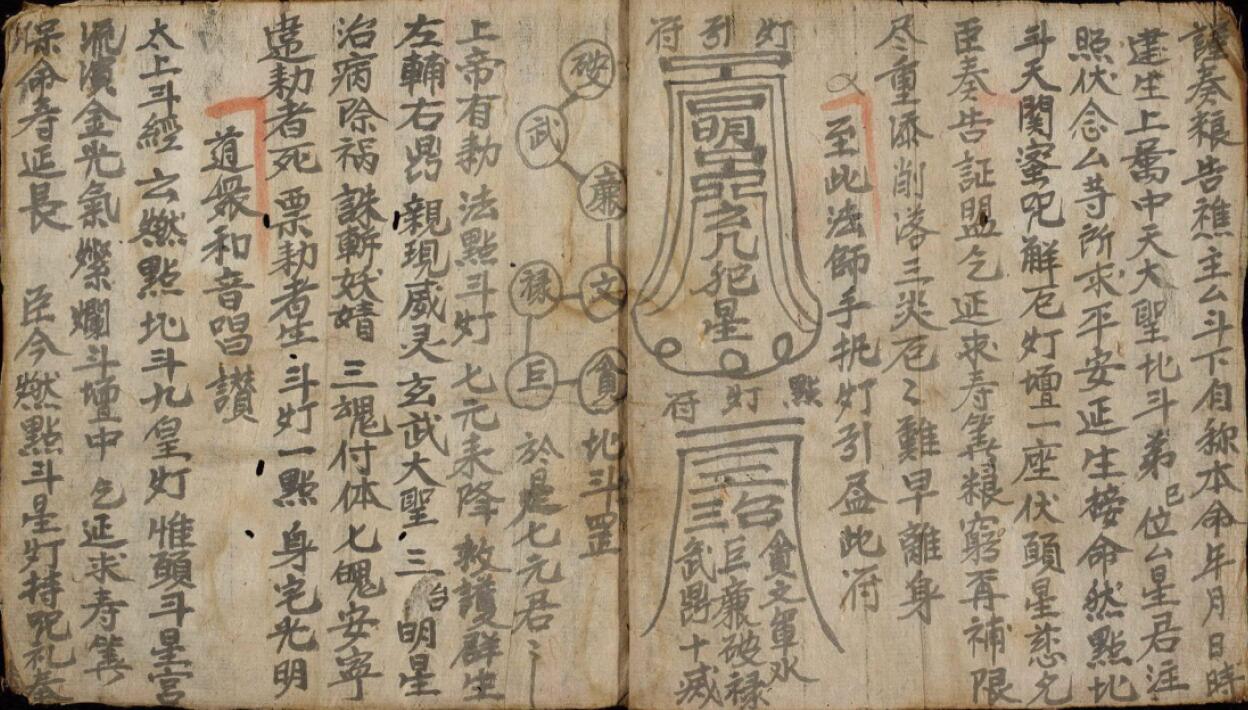 謹奏粮告醮主厶斗下自称本命年月日時
建生上属中天大聖北斗弟已位厶星君注
照伏念厶等所求平安延生接命然點北
斗天關蜜咒解厄灯壇一座伏願星慈允
臣奏告証盟乞延求寿筭粮窮再補限
尽重添削落三災厄〻難早離身
至此法師手执灯引盏此符
灯引符
明
凡犯星
點灯符
台
貪文軍
巨廉破禄
武鼎十威
北斗罡
破
武
廉
文
禄
巨
貪
於是七元君〻
上帝有勅法點斗灯七元来降救護群生
左輔右弼親現威灵玄武大聖三台明星
治病除祸誅斬妖精三魂付体七魄安寧
違勅者死票勅者生斗灯一點身宅光明
道衆和音唱讃
太上斗經云燃點北斗九皇灯惟願斗星宮
流濱金光氣燦爛斗壇中乞延求寿筭
保命寿延長 臣今燃點斗星灯持咒礼奏